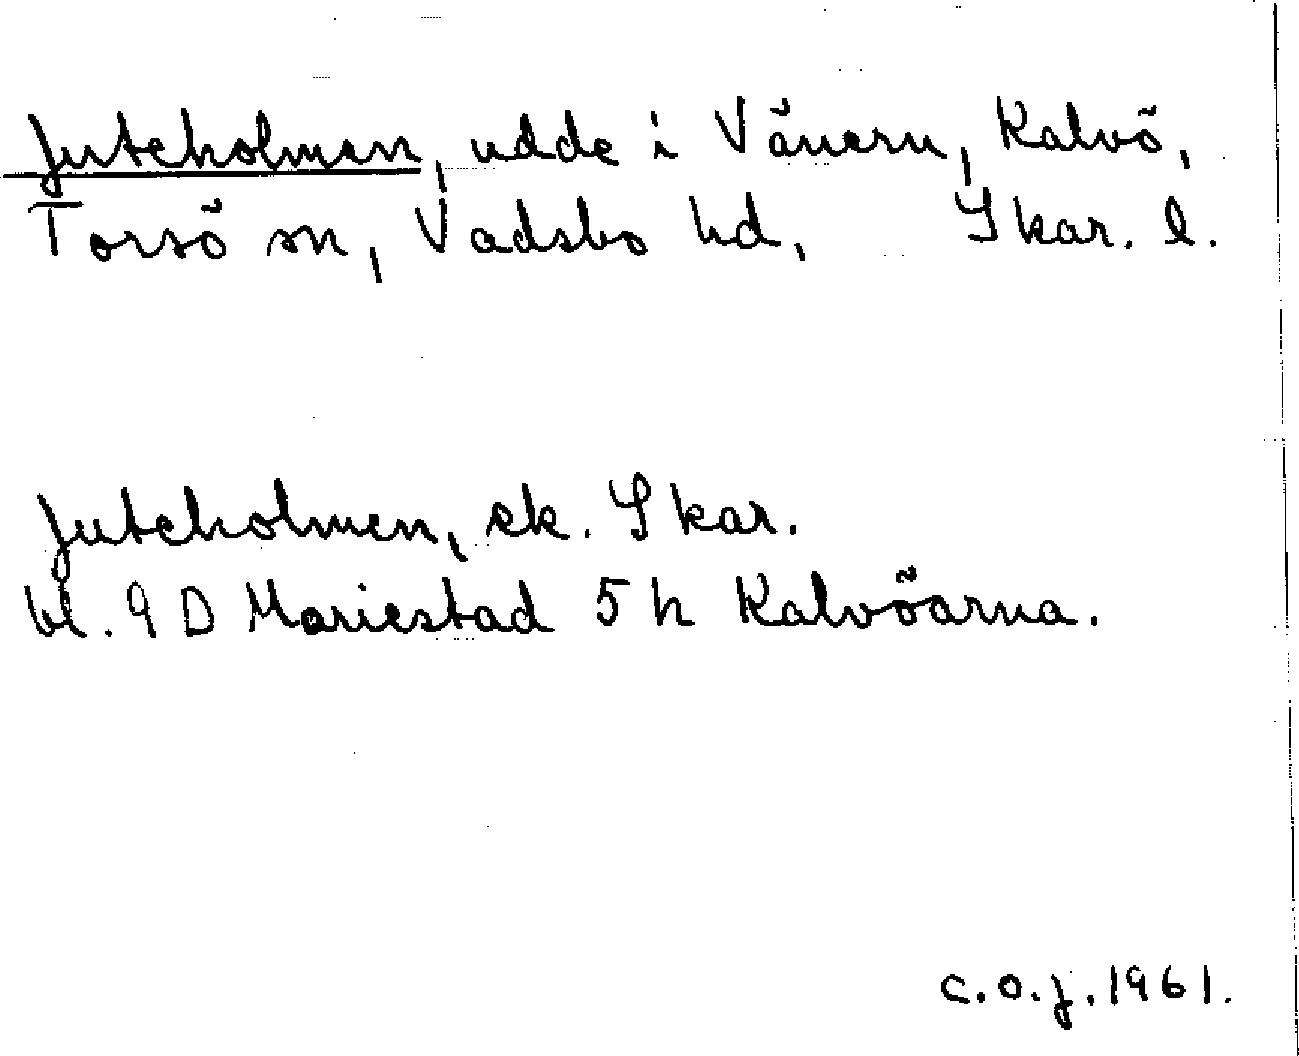 Juteholmen, udde i Vänern, Kalvö,
Torsö sn, Vadsbo hd, Skar. l.
Juteholmen, ek. Skar.
bl. 9 D Mariestad 5 h Kalvöarna.
C.O.J. 1961.